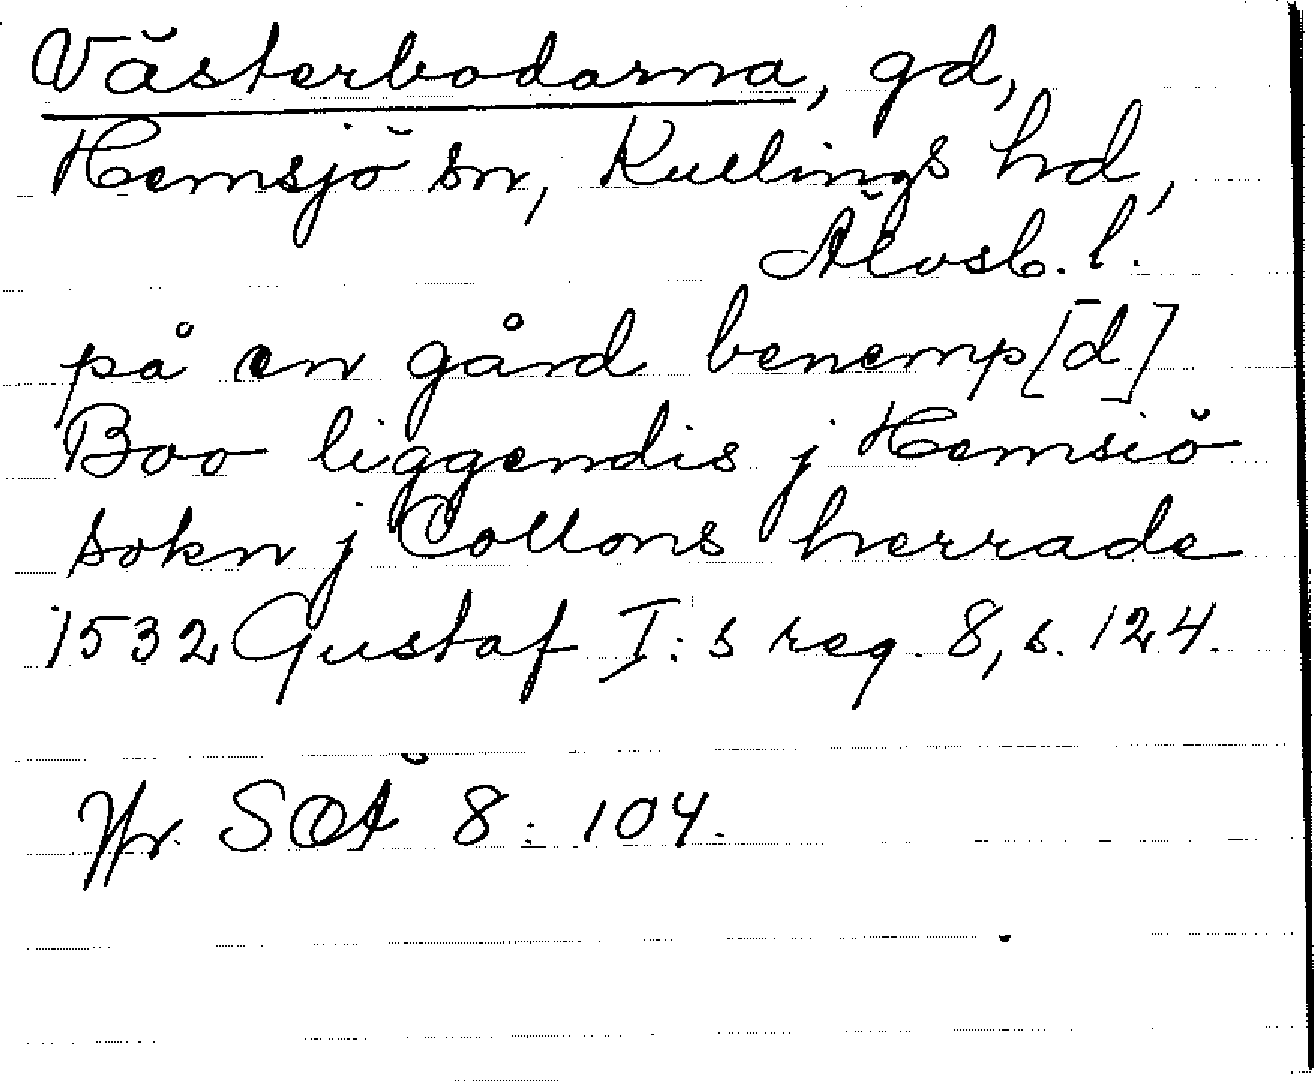 Västerbodarna, gd,
Hemsjö sn, Kullings hd,
Älvsb. l.
på en gård benemp[d]
Boo liggendis j Hemsiö
sokn j Collons herrade
1532 Gustaf I:s reg. 8, s. 124.
Jfr SOÄ 8: 104.